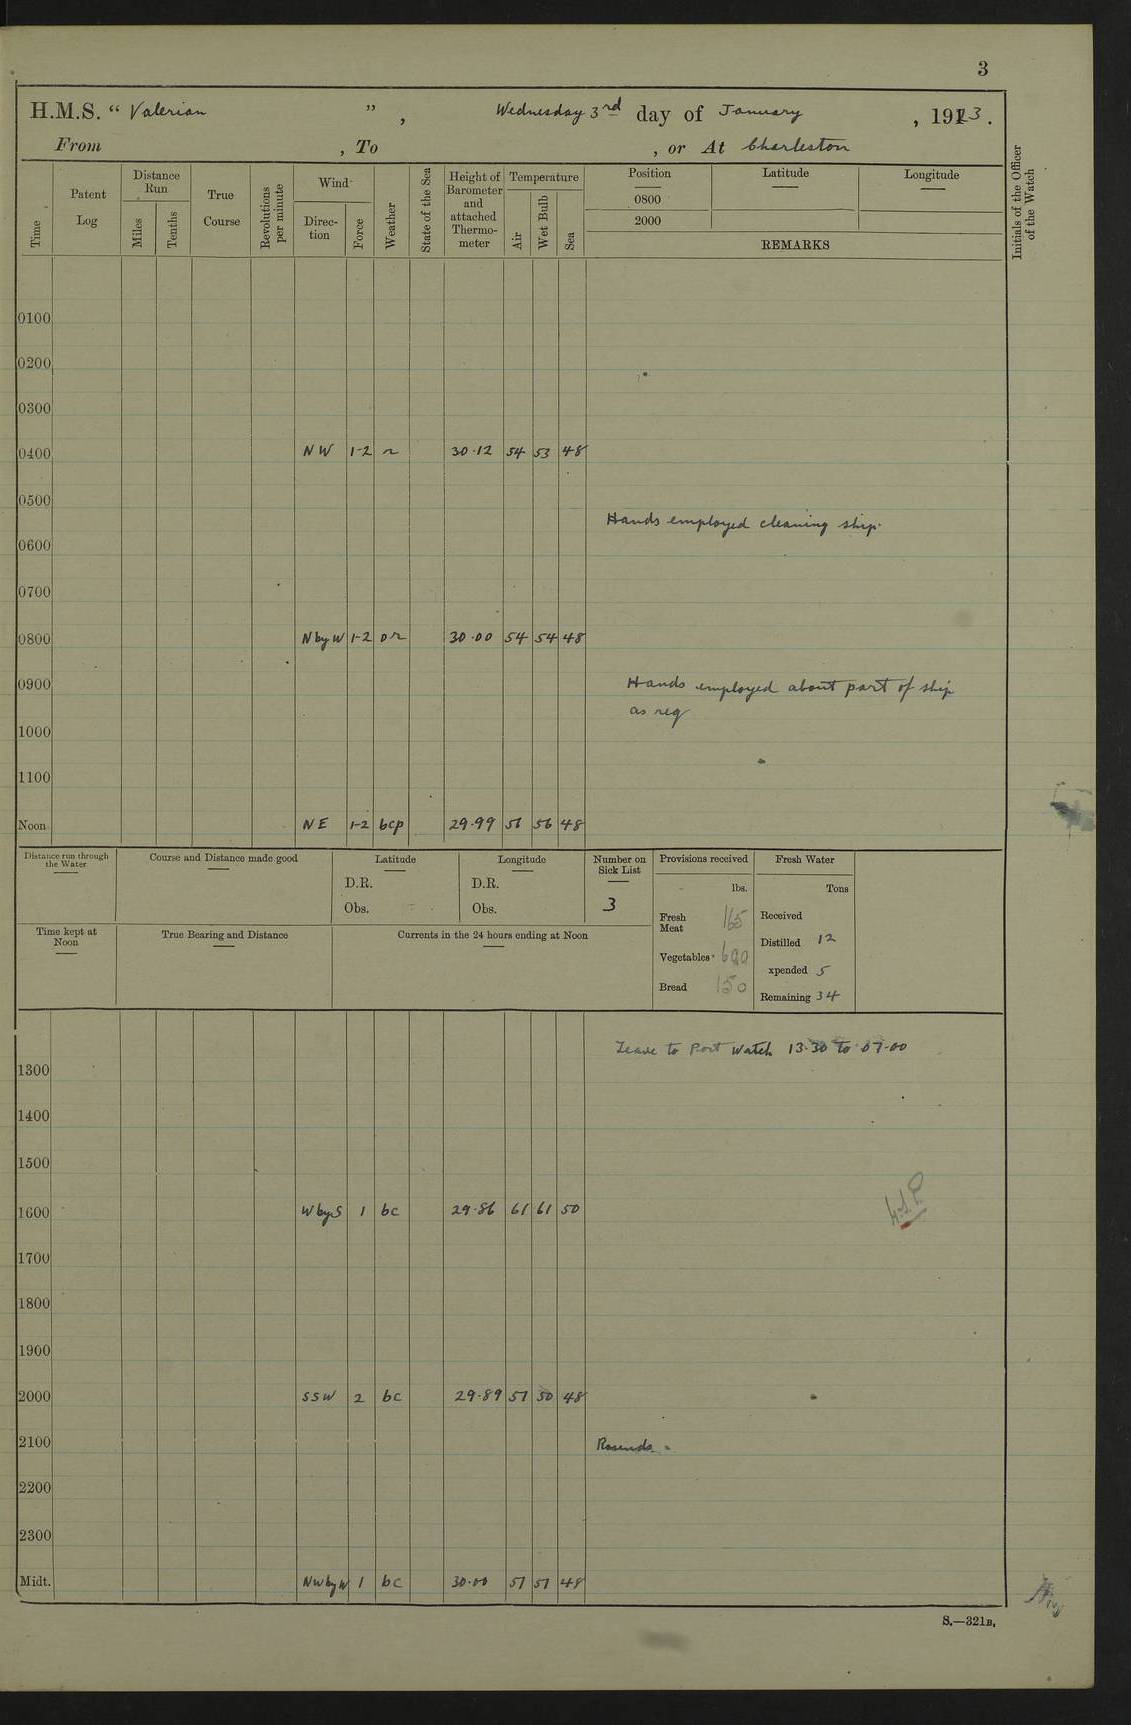 3
H.M.S. “ Valerian ”, Wednesday 3rd day of January, 1923.
From , To , or At Charleston
Time
Patent Log
Distance Run
Miles
Tenths
True Course
Revolutions per minute
Wind
Direction
Force
Weather
State of the Sea
Height of Barometer and attached Thermometer
Temperature
Air
Wet Bulb
Sea
Position
0800
2000
Latitude
Longitude
REMARKS
Initials of the Officer of the Watch
0100
0200
0300
0400 NW 1-2 r 30.12 54 53 48
0500
Hands employed cleaning ship.
0600
0700
0800 N by W 1-2 or 30.00 54 54 48
0900 Hands employed about part of ship
as req
1000
1100
Noon NE 1-2 bcp 29.99 56 56 48
Distance run through the Water
Course and Distance made good
Latitude
D.R.
Obs.
Longitude
D.R.
Obs.
Number on Sick List
3
Provisions received
lbs.
Fresh Meat 165
Vegetables
Bread 150
Fresh Water
Tons
Received
Distilled 12
xpended 5
Remaining 34
Time kept at Noon
True Bearing and Distance
Currents in the 24 hours ending at Noon
Leave to Port Watch 13.30 to 07.00
1300
1400
1500
1600 W by S 1 bc 29.86 61 61 50
1700
1800
1900
2000 SSW 2 bc 29.89 51 50 48
2100 Rounds.
2200
2300
Midt. NW by W 1 bc 30.00 51 51 48
S.—321B.